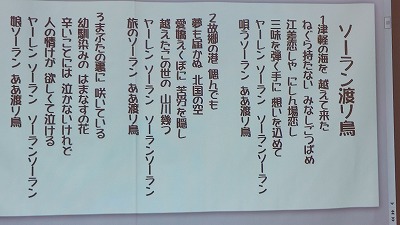 ソーラン渡り鳥
1津軽の海を 越えて来た
ねぐら持たない みなしごつばめ
江差恋しや にしん場恋し
三味を弾く手に 想いを込めて
ヤーレン ソーラン ソーランソーラン
唄うソーラン ああ渡り鳥
2故郷の港 偲んでも
夢も届かぬ 北国の空
愛嬌えくぼに 苦労を隠し
越えたこの世の 山川幾つ
ヤーレン ソーラン ソーランソーラン
旅のソーラン ああ渡り鳥
3まぶたの裏に 咲いている
幼馴染みの はまなすの花
辛いことには 泣かないけれど
人の情けが 欲しくて泣ける
ヤーレン ソーラン ソーランソーラン
娘ソーラン ああ渡り鳥